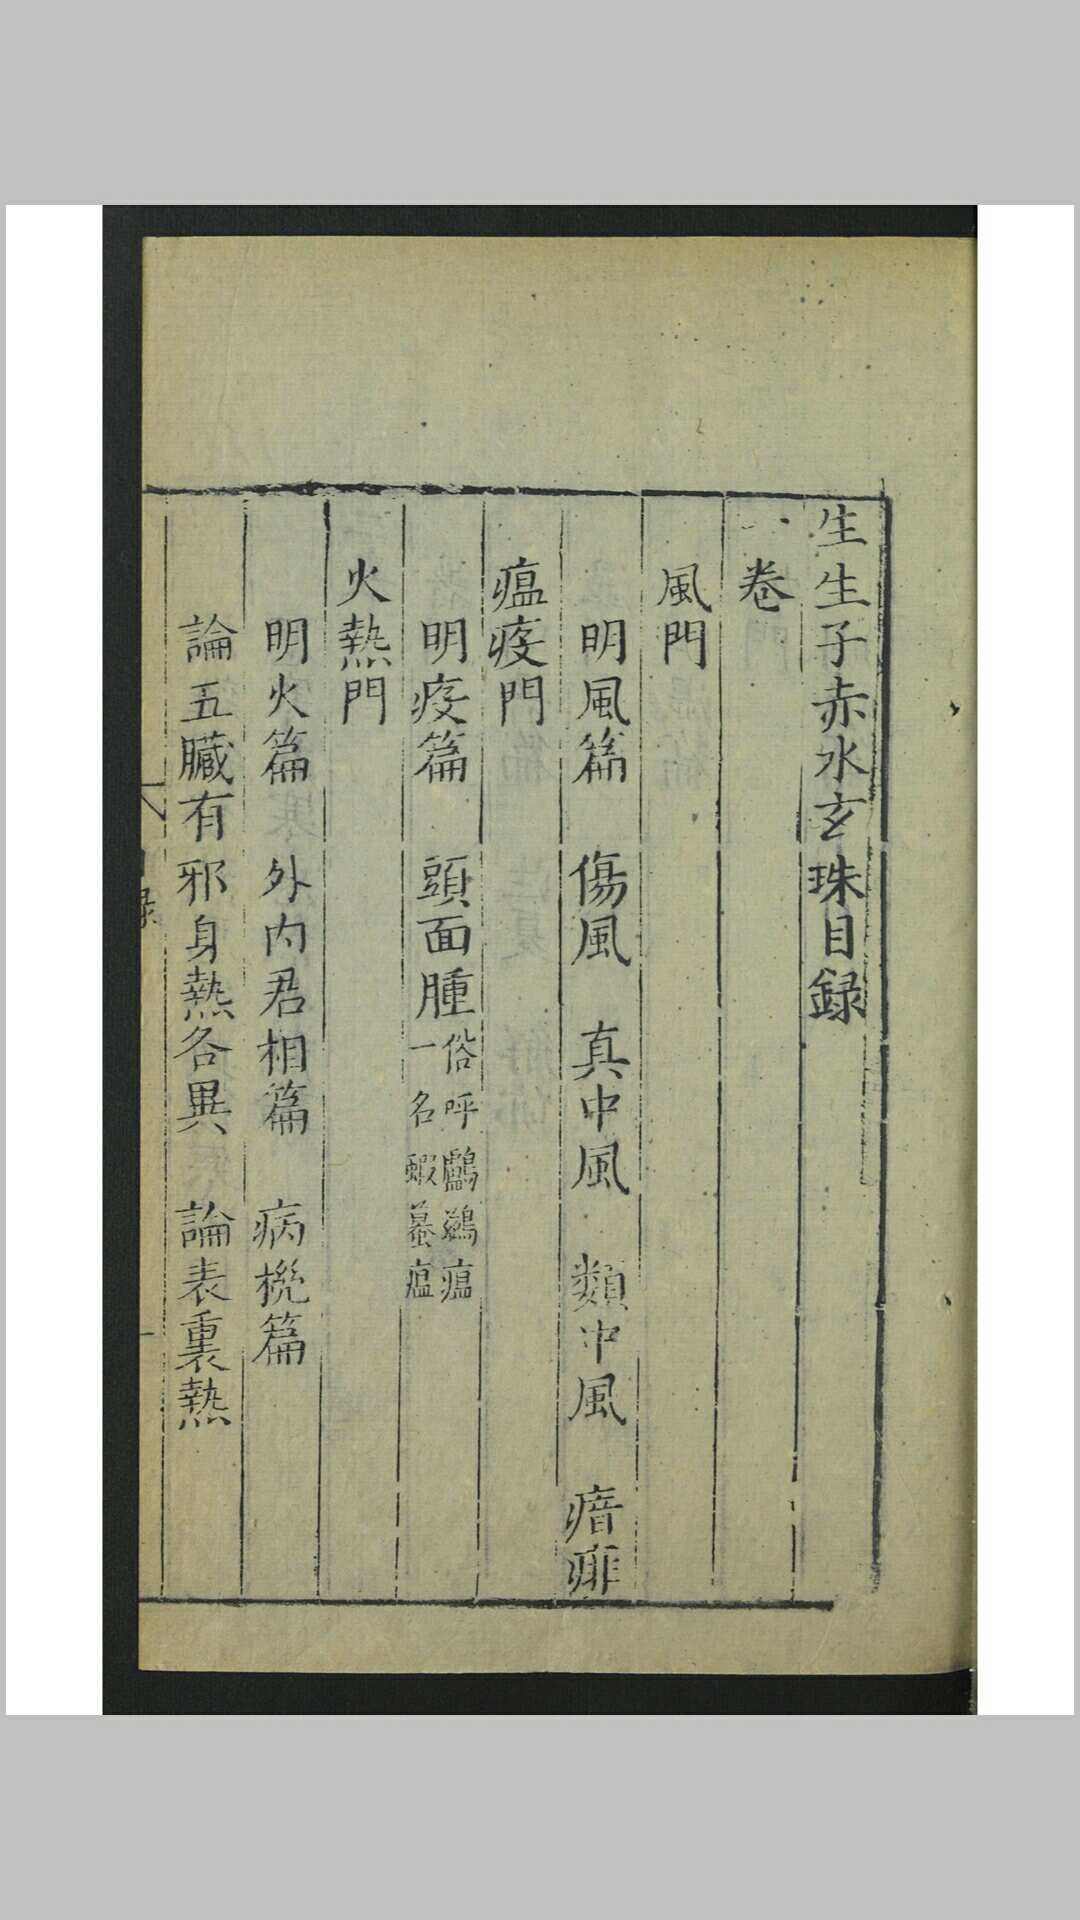 生生子赤水玄珠目録
一卷
風門
明風篇　傷風　真中風　類中風　瘖痱
瘟疫門
明疫篇　頭面腫俗呼鸕鷀瘟
一名蝦蟇瘟
火熱門
明火篇　外内君相篇　病機篇
論五臟有邪身熱各異　論表裏熱